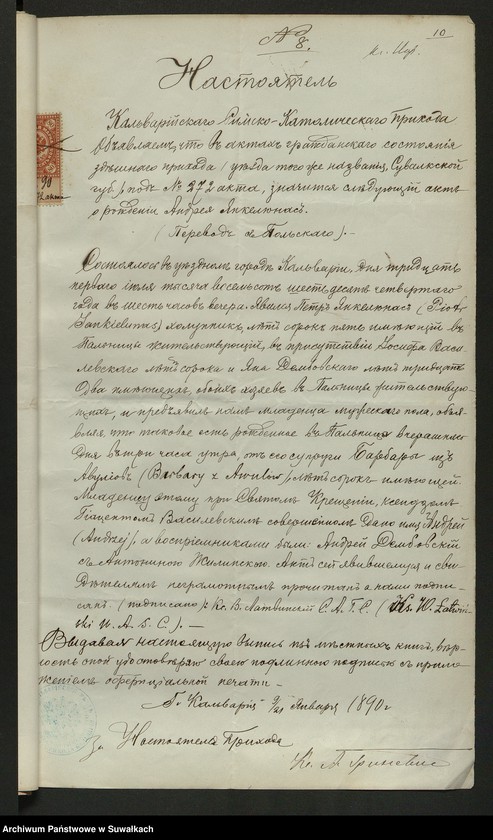 № 8.
10
Настоятель
Кальварійскаго Римско-Католическаго Прихода
объявляетъ, что въ актахъ гражданскаго состоянія
здѣшняго прихода, уѣзда того же названія, Сувалкской
губ., подъ № 272 акта, значится слѣдующій актъ
о рожденіи Андрея Янкелюнасъ.
(Переводъ съ Польскаго). —
Состоялось въ уѣздномъ городѣ Кальваріи, дня тридцать
перваго іюля тысяча восемьсотъ шестьдесятъ четвертаго
года въ шесть часовъ вечера. Явился Петръ Янкелюнасъ (Piotr
Jankielunas) халупникъ, лѣтъ сорокъ пять имѣющій въ
жительствующій, въ присутствіи Іосифа Васи-
левскаго лѣтъ сорока и Яна Дембовскаго лѣтъ тридцать
два имѣющихъ, обоихъ хозяевъ въ жительствую-
щихъ, и предъявилъ намъ младенца мужескаго пола, объя-
вляя, что таковое есть рожденное въ вчерашняго
дня въ три часа утра, отъ его супруги Барбары изъ
(Barbary z) лѣтъ сорокъ имѣющей.
Младенцу этому при Святомъ Крещеніи, ксендзомъ
Гіацентомъ Василевскимъ совершенномъ дано имя Андрей
(Andrzej), а воспріемниками были: Андрей Дембовскій
съ Антониною Актъ сей явившемуся и сви-
дѣтелямъ неграмотнымъ прочитанъ а нами подпи-
санъ. (подписано): Кс. В. С. А. Г. С. (Ks. W.
U. A. S. C.). —
Выдавая настоящую выпись изъ мѣстныхъ книгъ, вѣр-
ность оной удостовѣряю своею подлинною подписью съ прило-
женіемъ оффиціальной печати. —
Г. Кальварія 9/21 Января 1890 г
За Настоятеля Прихода
Кс.
90
Archiwum Państwowe w Suwałkach